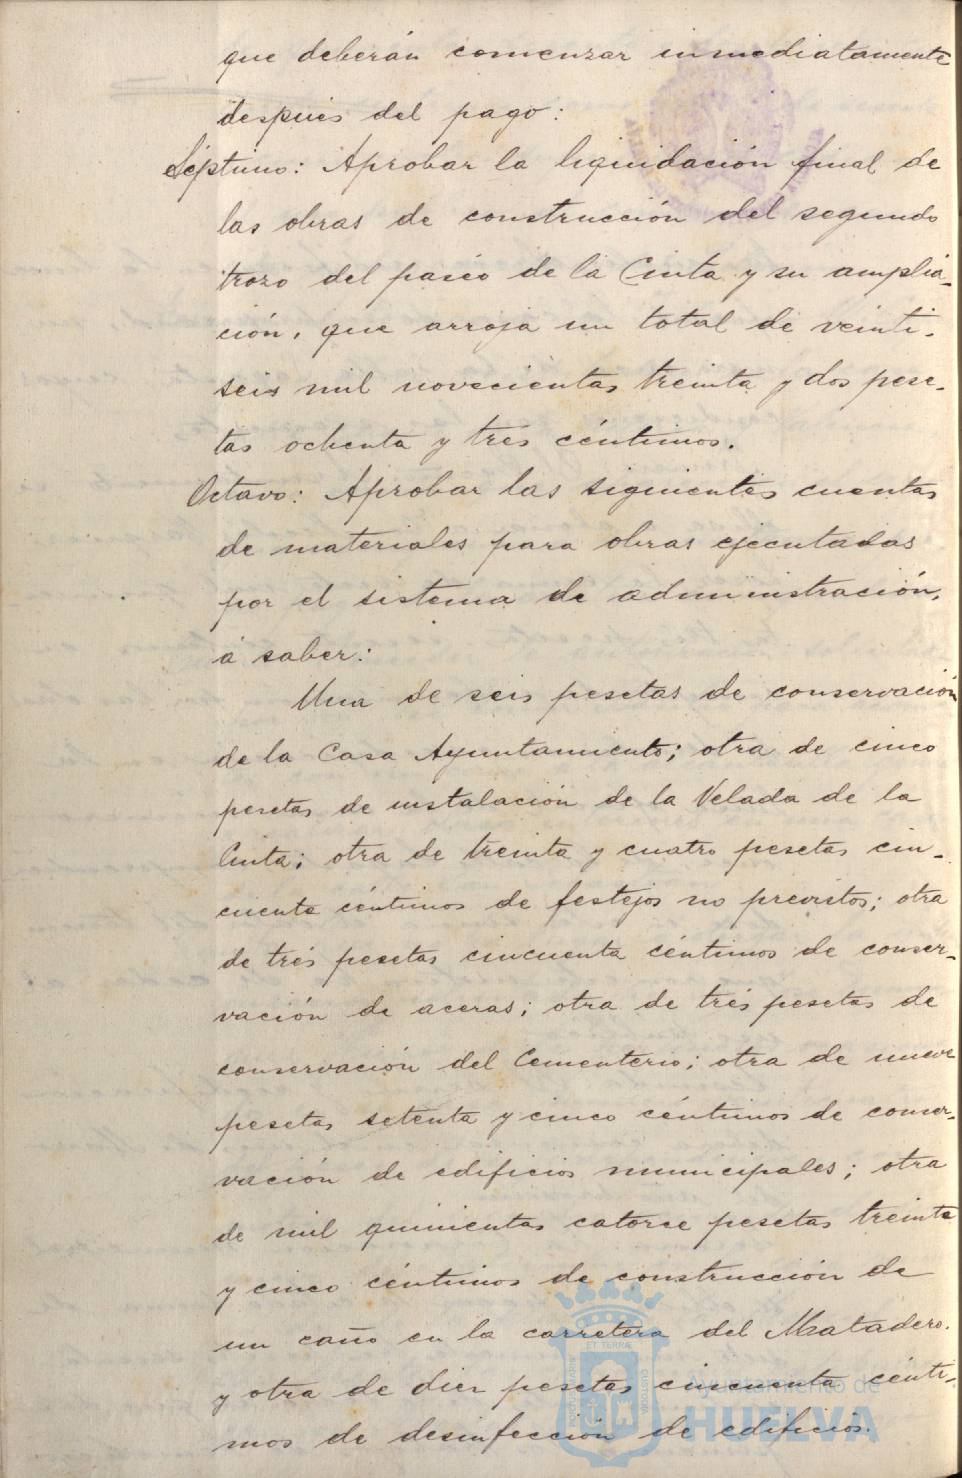 que deberán comenzar inmediatamente
después del pago:
Séptimo: Aprobar la liquidación final de
las obras de construcción del segundo
trozo del paseo de la Cinta y su amplia-
ción, que arroja un total de veinti-
seis mil novecientas treinta y dos pese-
tas ochenta y tres céntimos.
Octavo: Aprobar las siguientes cuentas
de materiales para obras ejecutadas
por el sistema de administración,
á saber:
Una de seis pesetas de conservación
de la Casa Ayuntamiento; otra de cinco
pesetas de instalación de la Velada de la
Cinta; otra de treinta y cuatro pesetas cin-
cuenta céntimos de festejos no previstos; otra
de tres pesetas cincuenta céntimos de conser-
vación de aceras; otra de tres pesetas de
conservación del Cementerio; otra de nueve
pesetas setenta y cinco céntimos de conser-
vación de edificios municipales; otra
de mil quinientas catorce pesetas treinta
y cinco céntimos de construcción de
un caño en la carretera del Matadero.
y otra de diez pesetas cincuenta cénti-
mos de desinfección de edificios.
ET TERRÆ
PORTUS MARIS
CUSTODIA
Ayuntamiento de
HUELVA